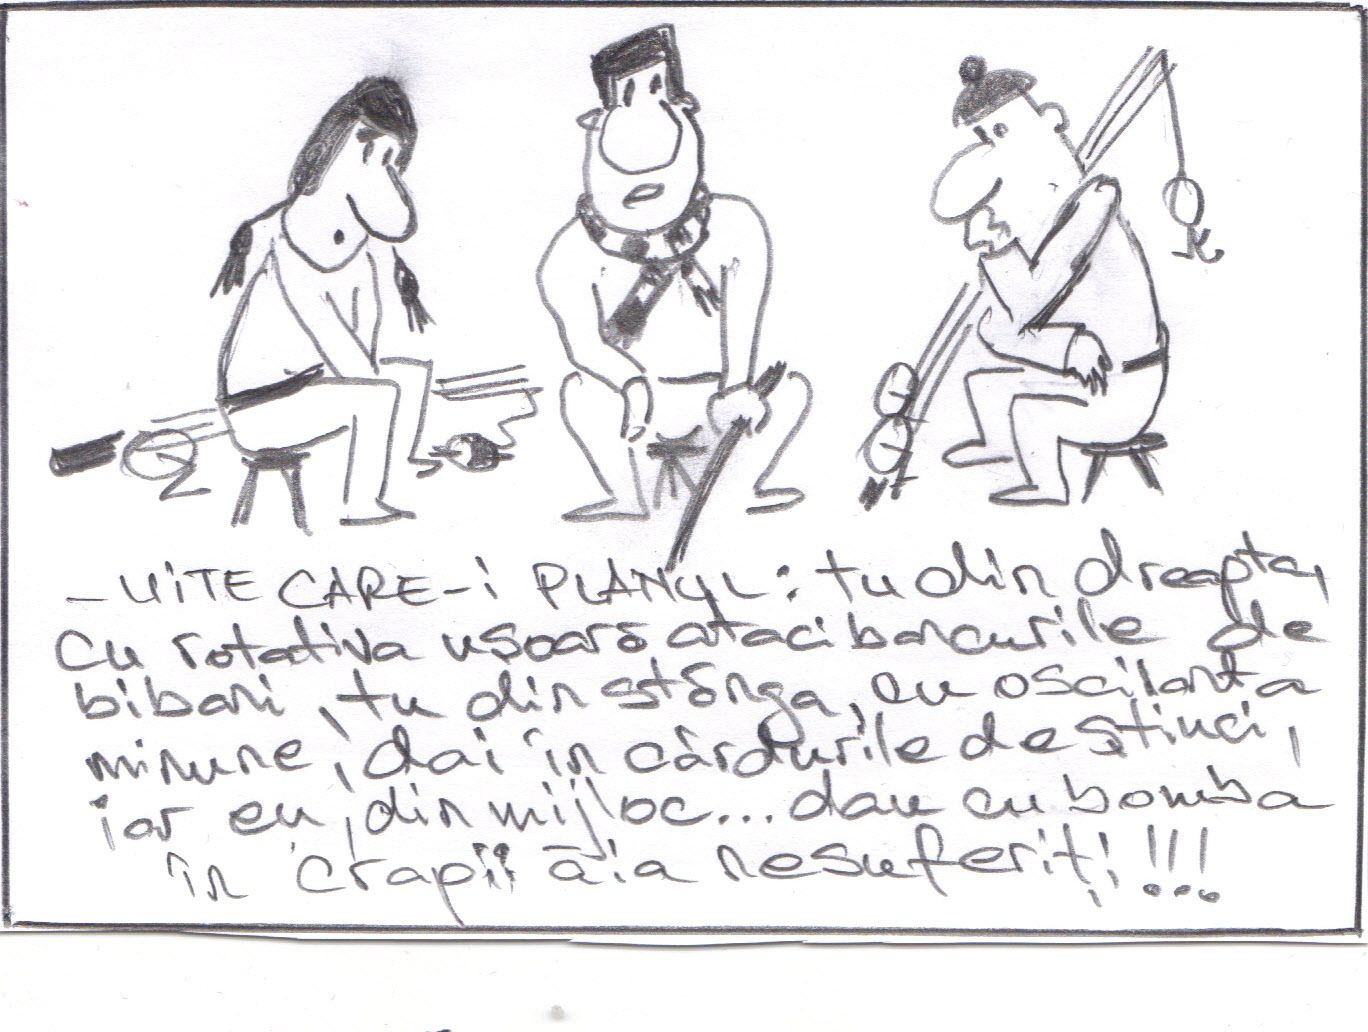 - UiTE CARE-i PLANUL: tu din dreapta,
cu rotativa ușoară ataci bancurile de
bibani, tu din stânga, cu oscilanta
minune, dai în cârdurile de știuci,
iar eu, din mijloc... dau cu bomba
în crapii ăia nesuferiți!!!